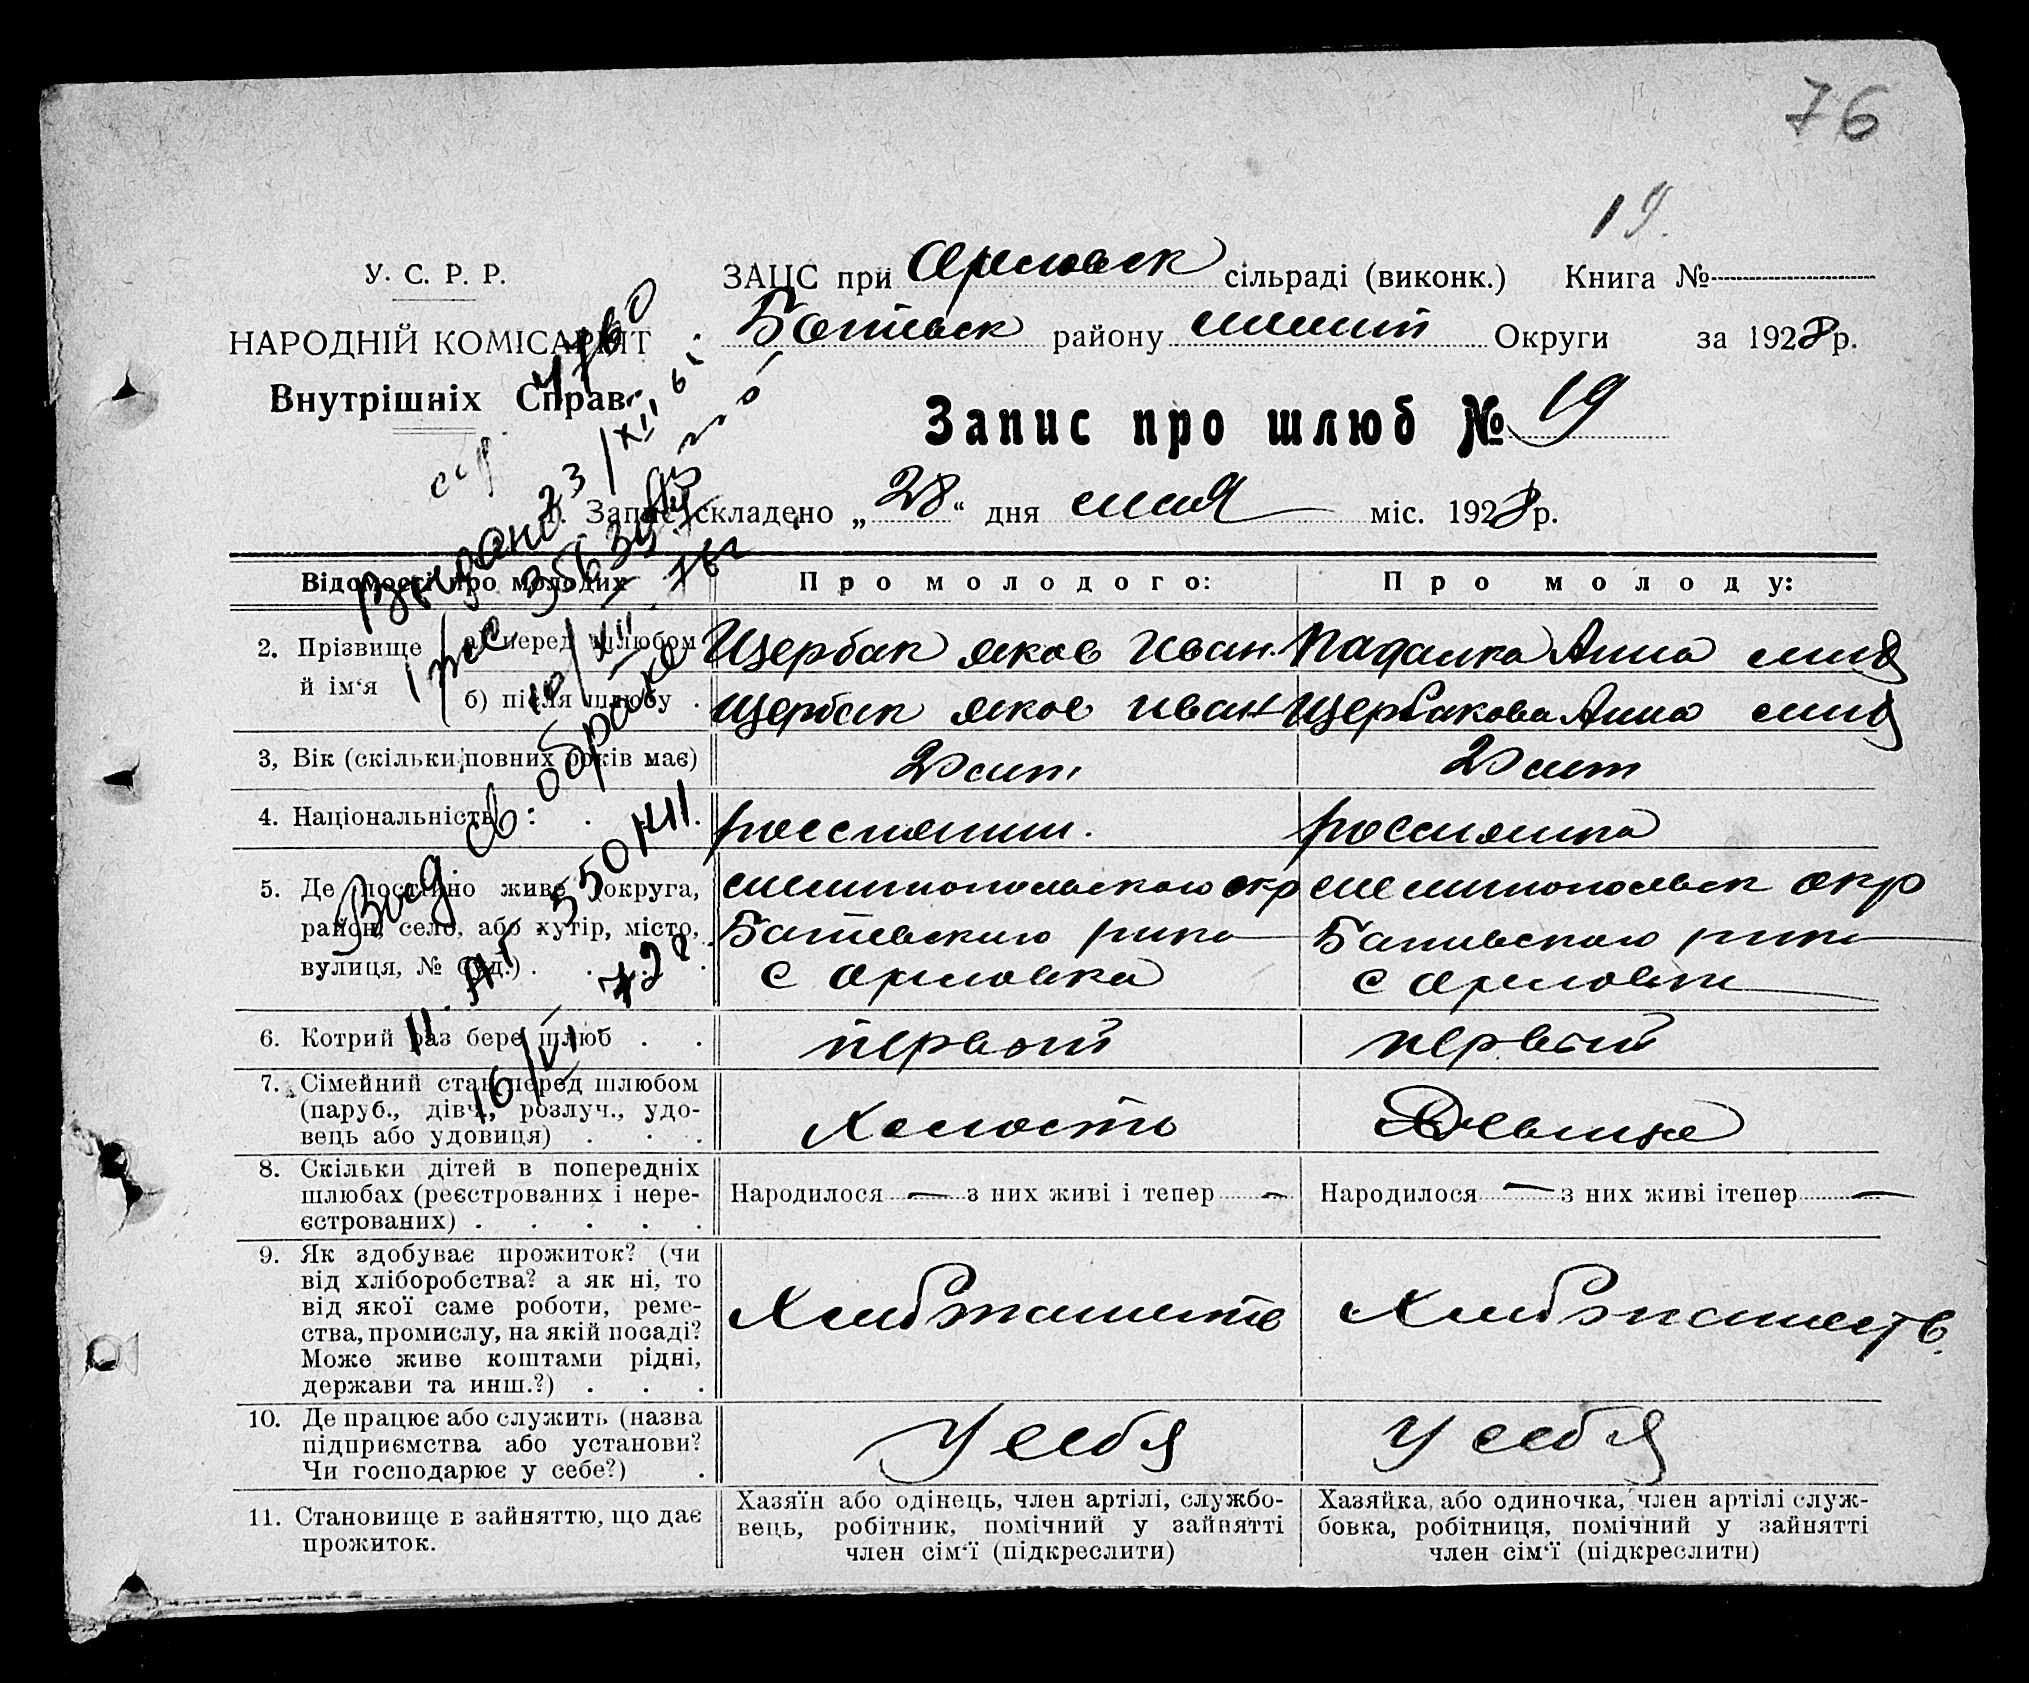 76
19.
У. С. Р. Р.
НАРОДНІЙ КОМІСАРІЯТ
Внутрішніх Справ
ЗАЦС при Орловск сільраді (виконк.) Книга №
района Округи за 1928 р.
Запис про шлюб № 19
1. Запис складено „28“ дня мая міс. 1928 р.
Відомості про молодих
Про молодого:
Про молоду:
2. Прізвище й ім‘я
а) перед шлюбом
Щербак Яков Иван.
Падалка Анна
б) після шлюбу .
Щербак Яков Иван
Щербакова Анна
3, Вік (скільки повних років має)
20 лет
20 лет
4. Національність . . . .
россиянин.
россиянка
5. Де постійно живе (округа,
район, село, або хутір, місто,
вулиця, № буд.) . . . .
Мелитопольского окр
с Орловка
Мелитопольск окр
с Орловки
6. Котрий раз бере шлюб . .
первый
первый
7. Сімейний стан перед шлюбом
(паруб., дівч., розлуч., удо-
вець або удовиця) . . .
Холость
Девица
8. Скільки дітей в попередніх
шлюбах (реєстрованих і нере-
єстрованих) . . . . .
Народилося — з них живі і тепер —
Народилося — з них живі ітепер —
9. Як здобуває прожиток? (чи
від хліборобства? а як ні, то
від якої саме роботи, реме-
ства, промислу, на якій посаді?
Може живе коштами рідні,
держави та инш.?) . . .
Хлебопашеств
Хлебопашеств.
10. Де працює або служить (назва
підприємства або установи?
Чи господарює у себе?) .
У себя
У себя
11. Становище в зайняттю, що дає
прожиток.
Хазяїн або одінець, член артілі, службо-
вець, робітник, помічний у зайнятті
член сім‘ї (підкреслити)
Хазяйка, або одиночка, член артілі служ-
бовка, робітниця, помічний у зайнятті
член сім‘ї (підкреслити)